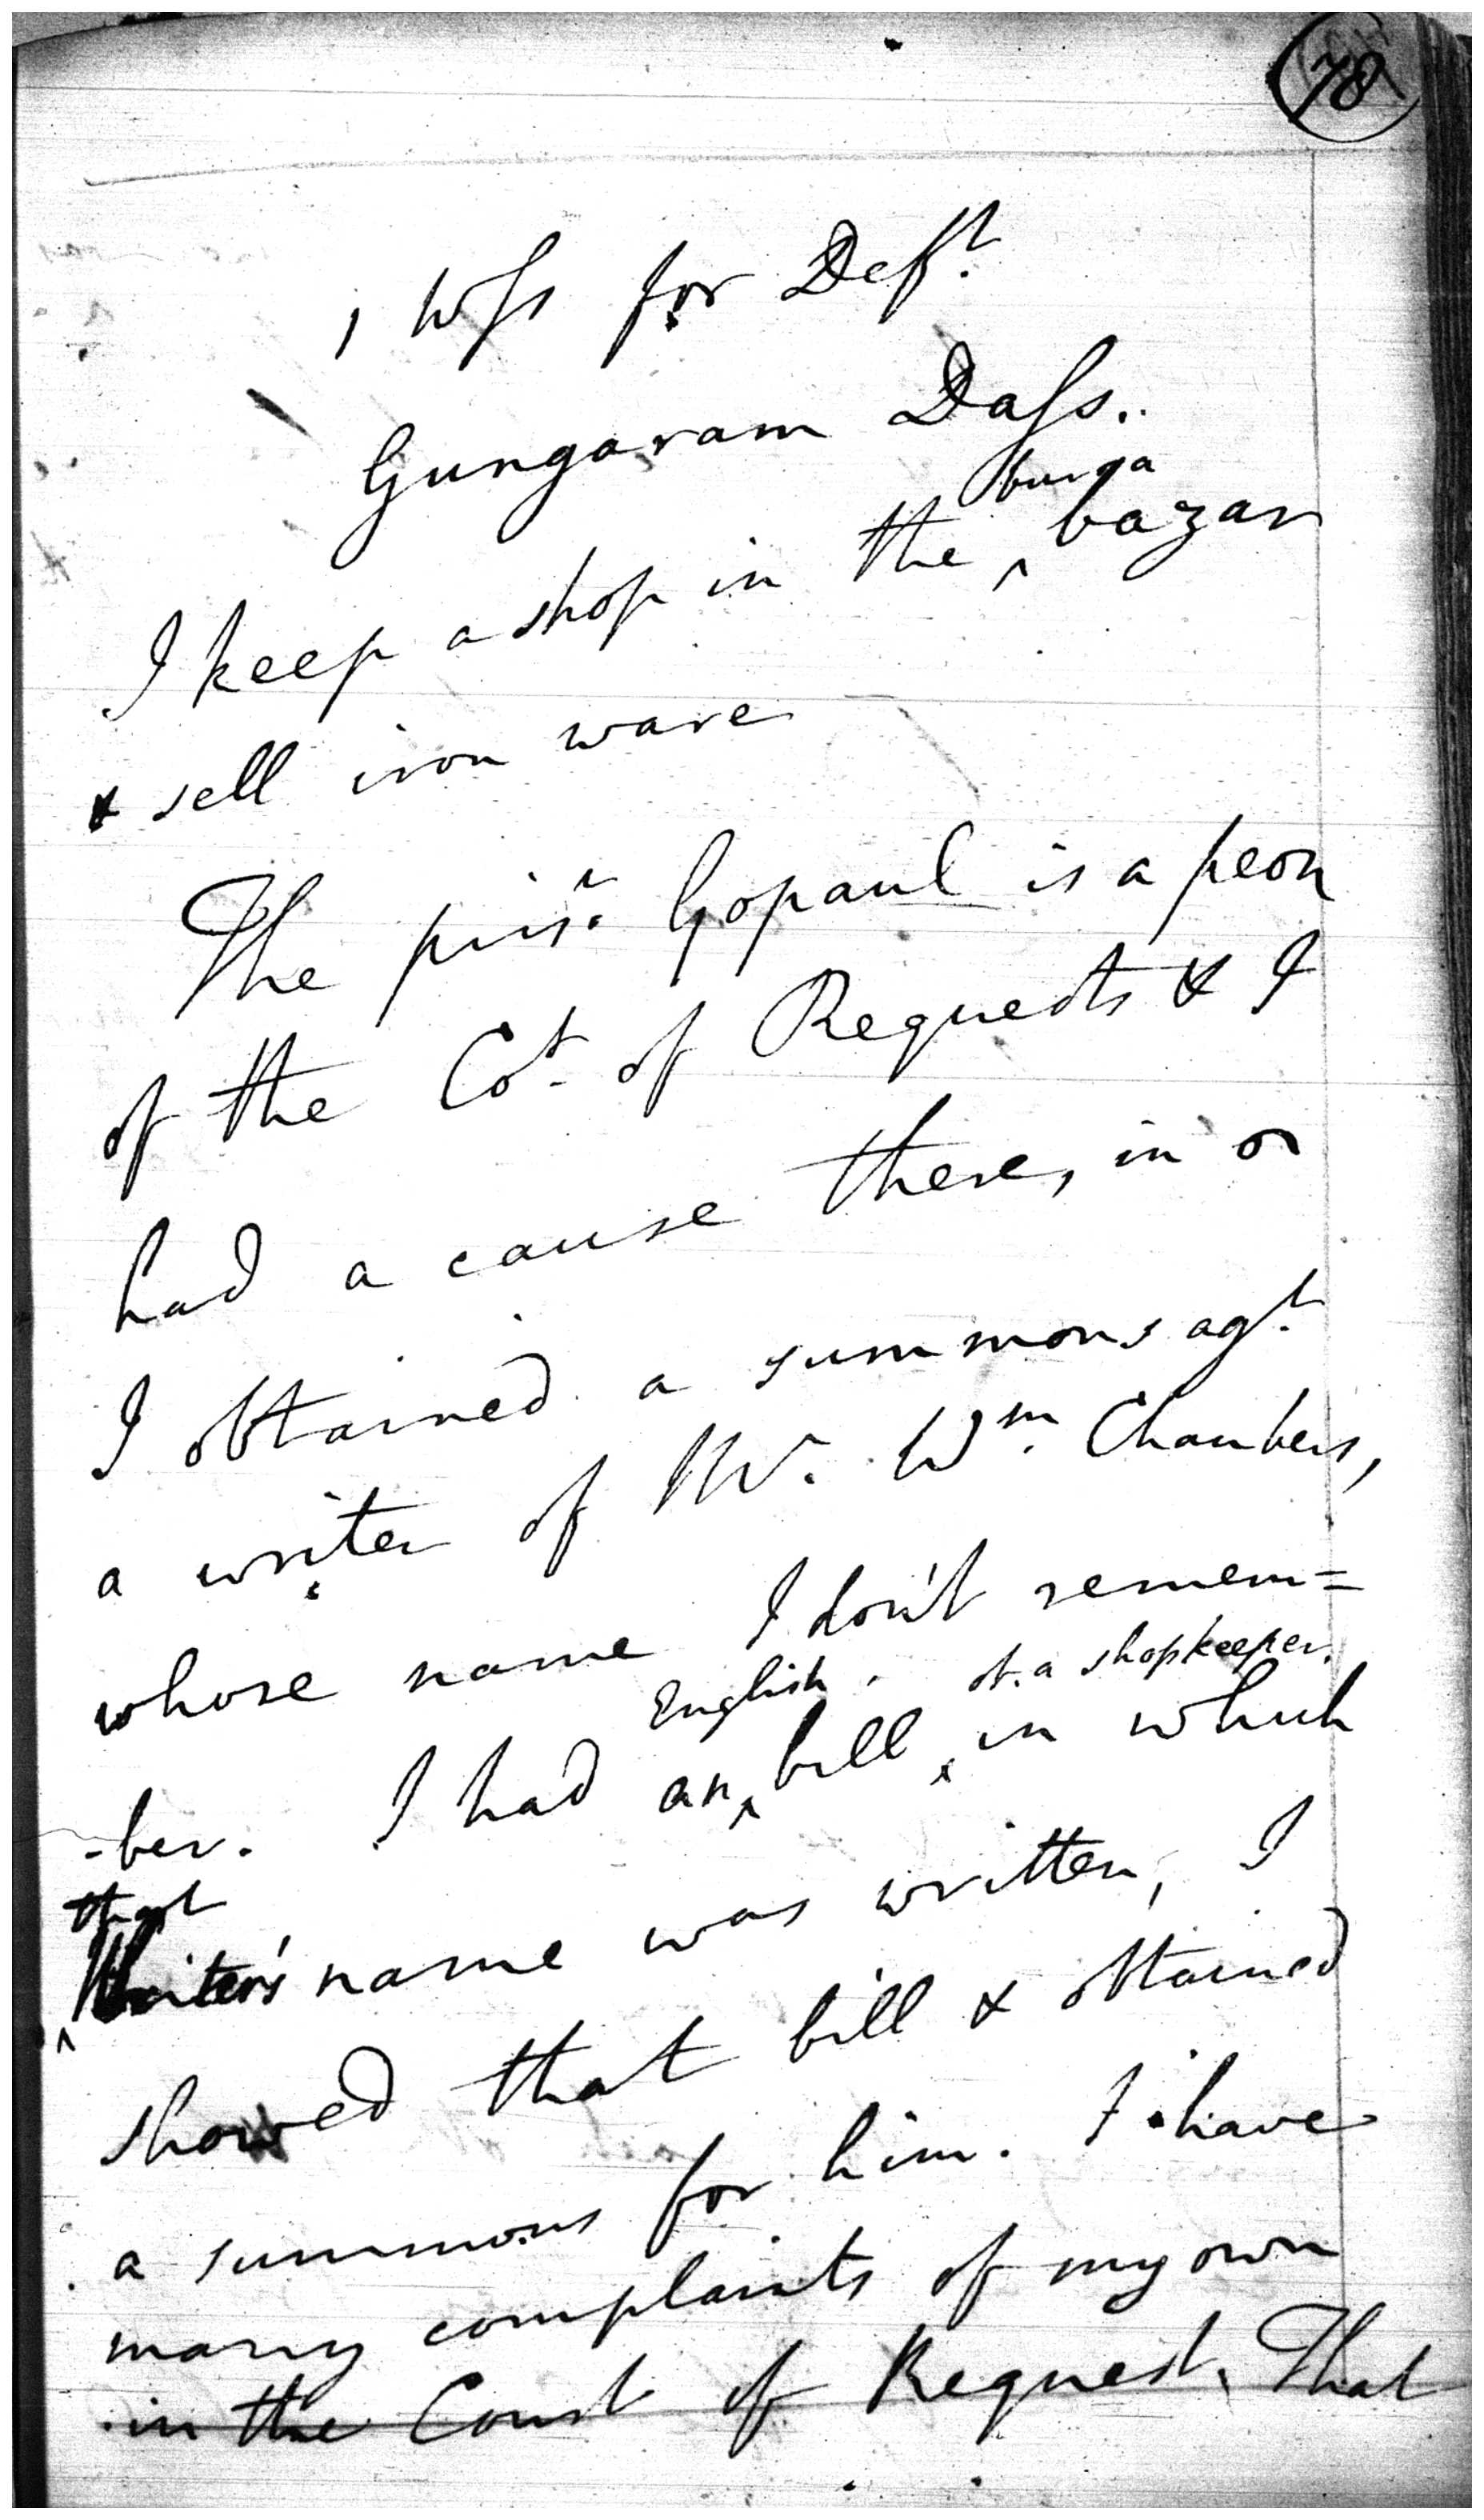 78
1 Wss for Deft.
Gungaram Dass.
burra
I keep a shop in the ^ bazar
& sell iron ware
The prisr. Gopaul is a peon
of the Cot. of Requests & I
had a cause there, in or
I obtained a summons agt.
a writer of Mr. Wm. Chambers,
whose name I don't remem=
English of a shopkeeper
-ber. I had an ^ bill ^ in which
that
^ Writer's name was written, I
showed that bill & obtained
a summons for him. I have
many complaints of my own
in the Court of Request. That